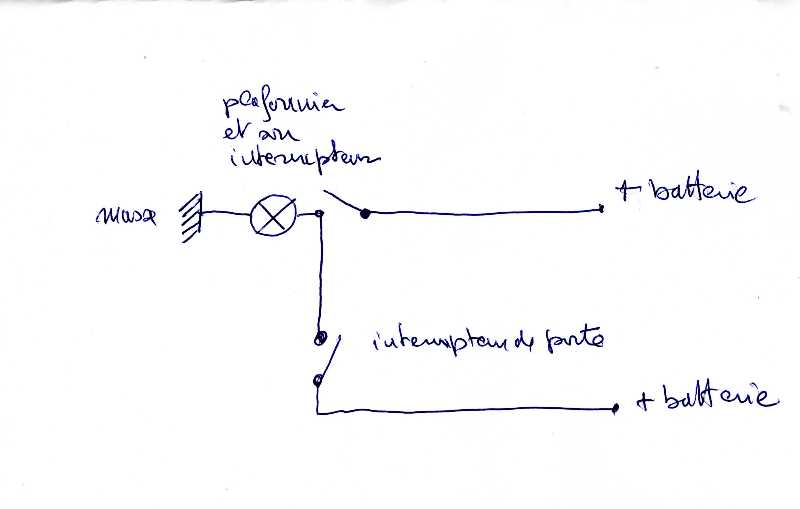 plafonnier
et son
interrupteur
+ batterie
masse
interrupteur de porte
+ batterie